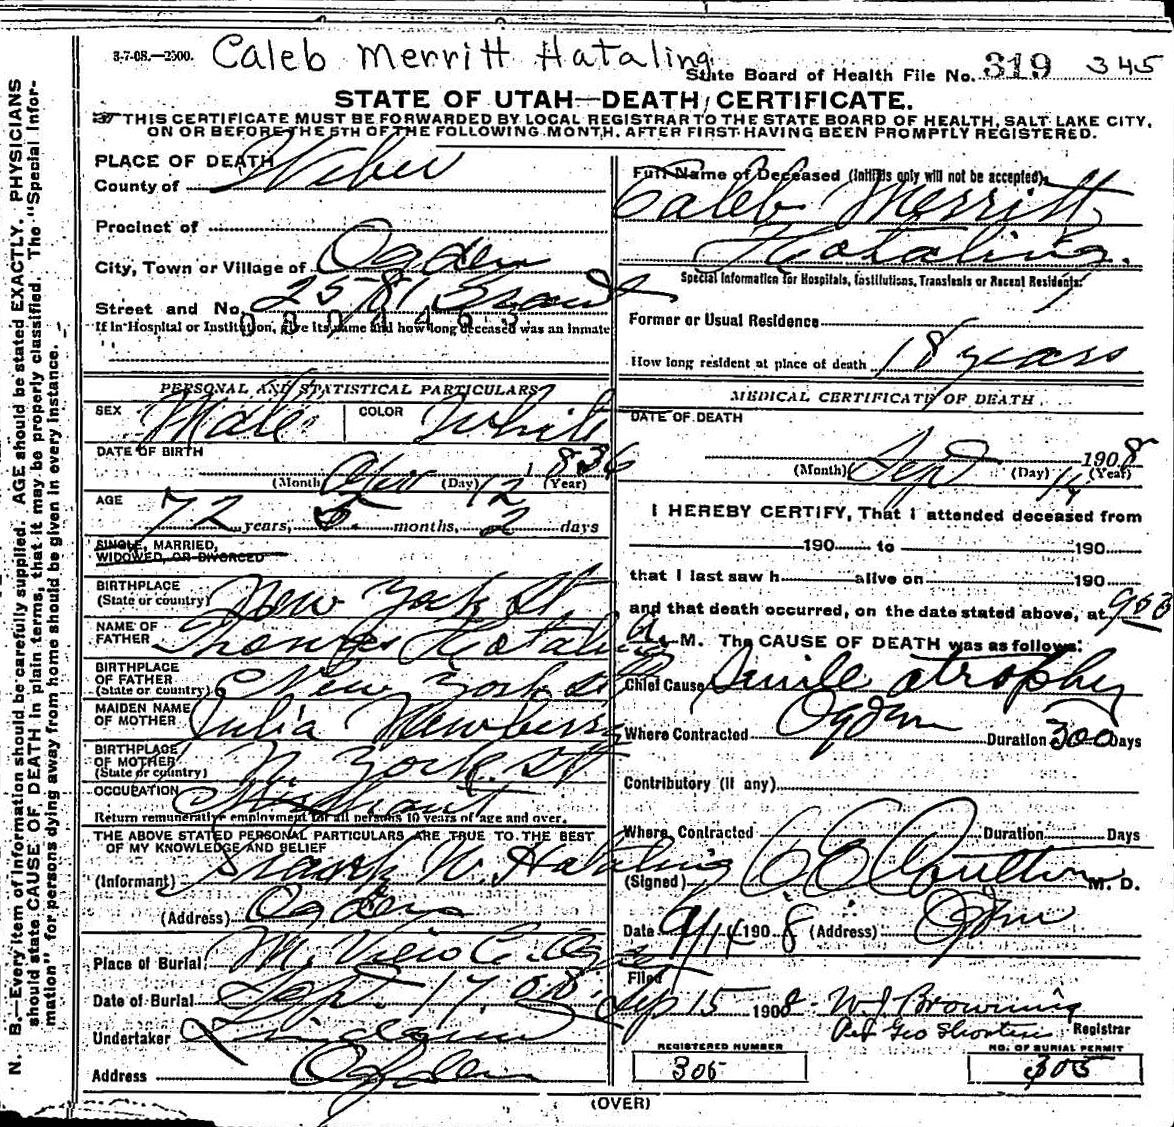 3-7-08.—2500. Caleb Merritt Hataling
State Board of Health File No. 319 345
STATE OF UTAH—DEATH CERTIFICATE.
THIS CERTIFICATE MUST BE FORWARDED BY LOCAL REGISTRAR TO THE STATE BOARD OF HEALTH, SALT LAKE CITY,
ON OR BEFORE THE 5TH OF THE FOLLOWING MONTH, AFTER FIRST HAVING BEEN PROMPTLY REGISTERED.
N. B.—Every item of information should be carefully supplied. AGE should be stated EXACTLY. PHYSICIANS
should state CAUSE OF DEATH in plain terms, that it may be properly classified. The "Special Infor-
mation" for persons dying away from home should be given in every instance.
PLACE OF DEATH
County of Weber
Precinct of
City, Town or Village of Ogden
Street and No. 2581 Grant
If in Hospital or Institution, give its name and how long deceased was an inmate
PERSONAL AND STATISTICAL PARTICULARS
SEX Male COLOR White
DATE OF BIRTH
(Month) (Day) 12 (Year) 1836
AGE
72 years, 5 months, 2 days
SINGLE, MARRIED,
WIDOWED, OR DIVORCED
BIRTHPLACE
(State or country) New York St.
NAME OF
FATHER Hotaling
BIRTHPLACE
OF FATHER
(State or country) New York St
MAIDEN NAME
OF MOTHER Julia Newberry
BIRTHPLACE
OF MOTHER
(State or country) N. York St
OCCUPATION Merchant
Return remunerative employment for all persons 10 years of age and over.
THE ABOVE STATED PERSONAL PARTICULARS ARE TRUE TO THE BEST
OF MY KNOWLEDGE AND BELIEF
(Informant) Frank W. Hataling
(Address) Ogden
Place of Burial Mt. View C. Ogden
Date of Burial Sept. 17 08
Undertaker Lindquist
Address Ogden
Full Name of Deceased (Initials only will not be accepted)
Caleb Merritt
Hotaling.
Special Information for Hospitals, Institutions, Transients or Recent Residents:
Former or Usual Residence
How long resident at place of death 18 years
MEDICAL CERTIFICATE OF DEATH
DATE OF DEATH
(Month) Sep (Day) 14 1908 (Year)
I HEREBY CERTIFY, That I attended deceased from
190 to 190
that I last saw h alive on 190
and that death occurred, on the date stated above, at
a. M. The CAUSE OF DEATH was as follows:
Chief Cause Senile atrophy
Where Contracted Ogden Duration 300 Days
Contributory (if any)
Where Contracted Duration Days
(Signed) Coulter M. D.
Date 9/14 1908 (Address) Ogden
Filed
Sep 15 1908 W. J. Browning
Registrar
REGISTERED NUMBER
305
NO. OF BURIAL PERMIT
305
(OVER)